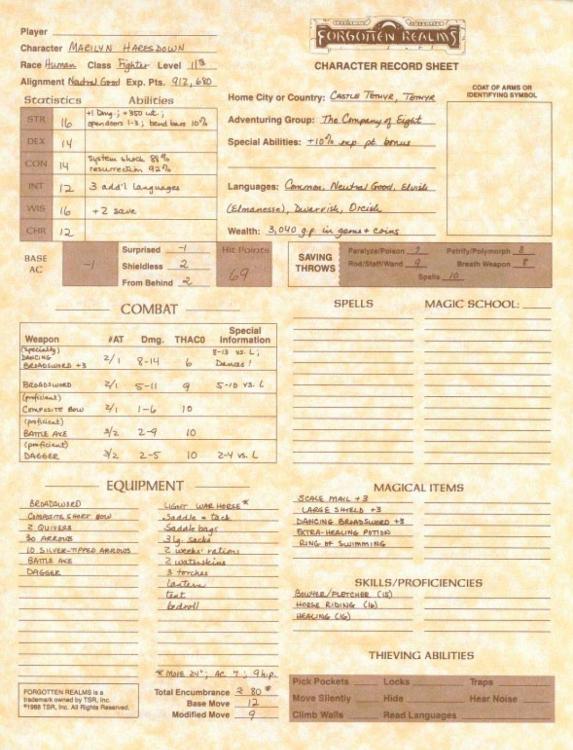 Player
FORGOTTEN REALMS
CHARACTER RECORD SHEET
Character MARILYN HARESDOWN
Race Human Class Fighter Level 11
Alignment Neutral Good Exp. Pts. 912,680
Statistics Abilities
STR 16 +1 Dmg.; +350 wt.;
open doors 1-3; bend bars 10%
DEX 14
CON 14 System shock 88%
resurrection 92%
INT 12 3 add'l languages
WIS 16 +2 save
CHR 12
Home City or Country: CASTLE TETHYR, TETHYR
Adventuring Group: The Company of Eight
Special Abilities: +10% exp. pt. bonus
Languages: Common, Neutral Good, Elvish
(Elmanesse), Dwarvish, Orcish
Wealth: 3,040 g.p. in gems + coins
COAT OF ARMS OR
IDENTIFYING SYMBOL
BASE
AC -1
Surprised -1
Shieldless 2
From Behind 2
Hit Points
69
SAVING
THROWS
Paralyze/Poison 7 Petrify/Polymorph 8
Rod/Staff/Wand 9 Breath Weapon 8
Spells 10
COMBAT
Weapon #AT Dmg. THAC0 Special
Information
(specialty)
DANCING
BROADSWORD +3 2/1 8-14 6 8-13 vs. L;
Dances!
BROADSWORD 2/1 5-11 9 5-10 vs. L
(proficient)
COMPOSITE BOW 2/1 1-6 10
(proficient)
BATTLE AXE 3/2 2-9 10
(proficient)
DAGGER 3/2 2-5 10 2-4 vs. L
SPELLS MAGIC SCHOOL:
EQUIPMENT
BROADSWORD
COMPOSITE SHORT BOW
2 QUIVERS
30 ARROWS
10 SILVER-TIPPED ARROWS
BATTLE AXE
DAGGER
LIGHT WAR HORSE *
Saddle + tack
Saddle bags
3 lg. sacks
2 weeks' rations
2 waterskins
3 torches
lantern
tent
bedroll
* MOVE 24"; AC 7; 9 h.p.
Total Encumbrance 280 #
Base Move 12
Modified Move 9
MAGICAL ITEMS
SCALE MAIL +3
LARGE SHIELD +3
DANCING BROADSWORD +3
EXTRA-HEALING POTION
RING OF SWIMMING
SKILLS/PROFICIENCIES
BOWYER/FLETCHER (15)
HORSE RIDING (16)
HEALING (16)
THIEVING ABILITIES
Pick Pockets Locks Traps
Move Silently Hide Hear Noise
Climb Walls Read Languages
FORGOTTEN REALMS is a
trademark owned by TSR, Inc.
©1988 TSR, Inc. All Rights Reserved.